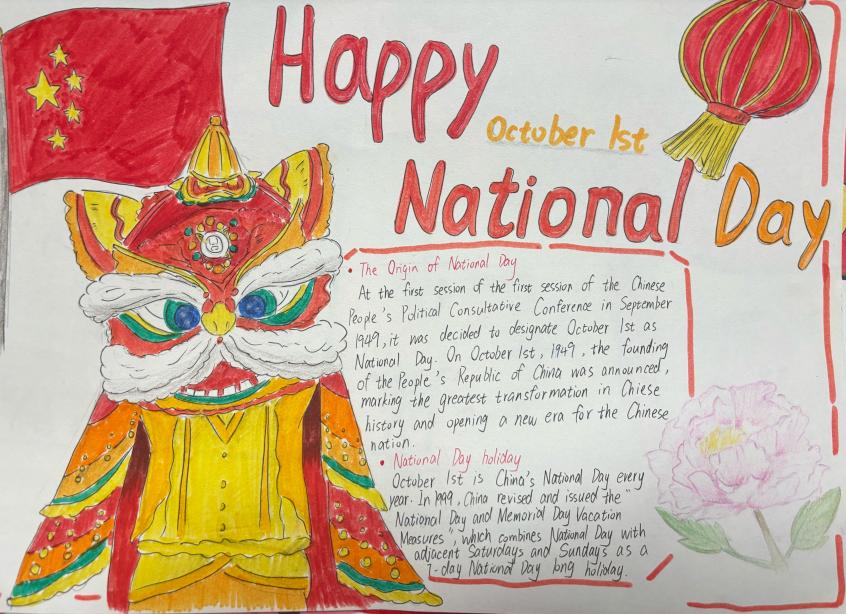 Happy
October 1st
National Day
• The Origin of National Day
At the first session of the first session of the Chinese
People's Political Consultative Conference in September
1949, it was decided to designate October 1st as
National Day. On October 1st, 1949, the founding
of the People's Republic of China was announced,
marking the greatest transformation in Chiese
history and opening a new era for the Chinese
nation.
• National Day holiday
October 1st is China's National Day every
year. In 1999, China revised and issued the "
National Day and Memorial Day Vacation
Measures", which combines National Day with
adjacent Saturdays and Sundays as a
7-day National Day long holiday.